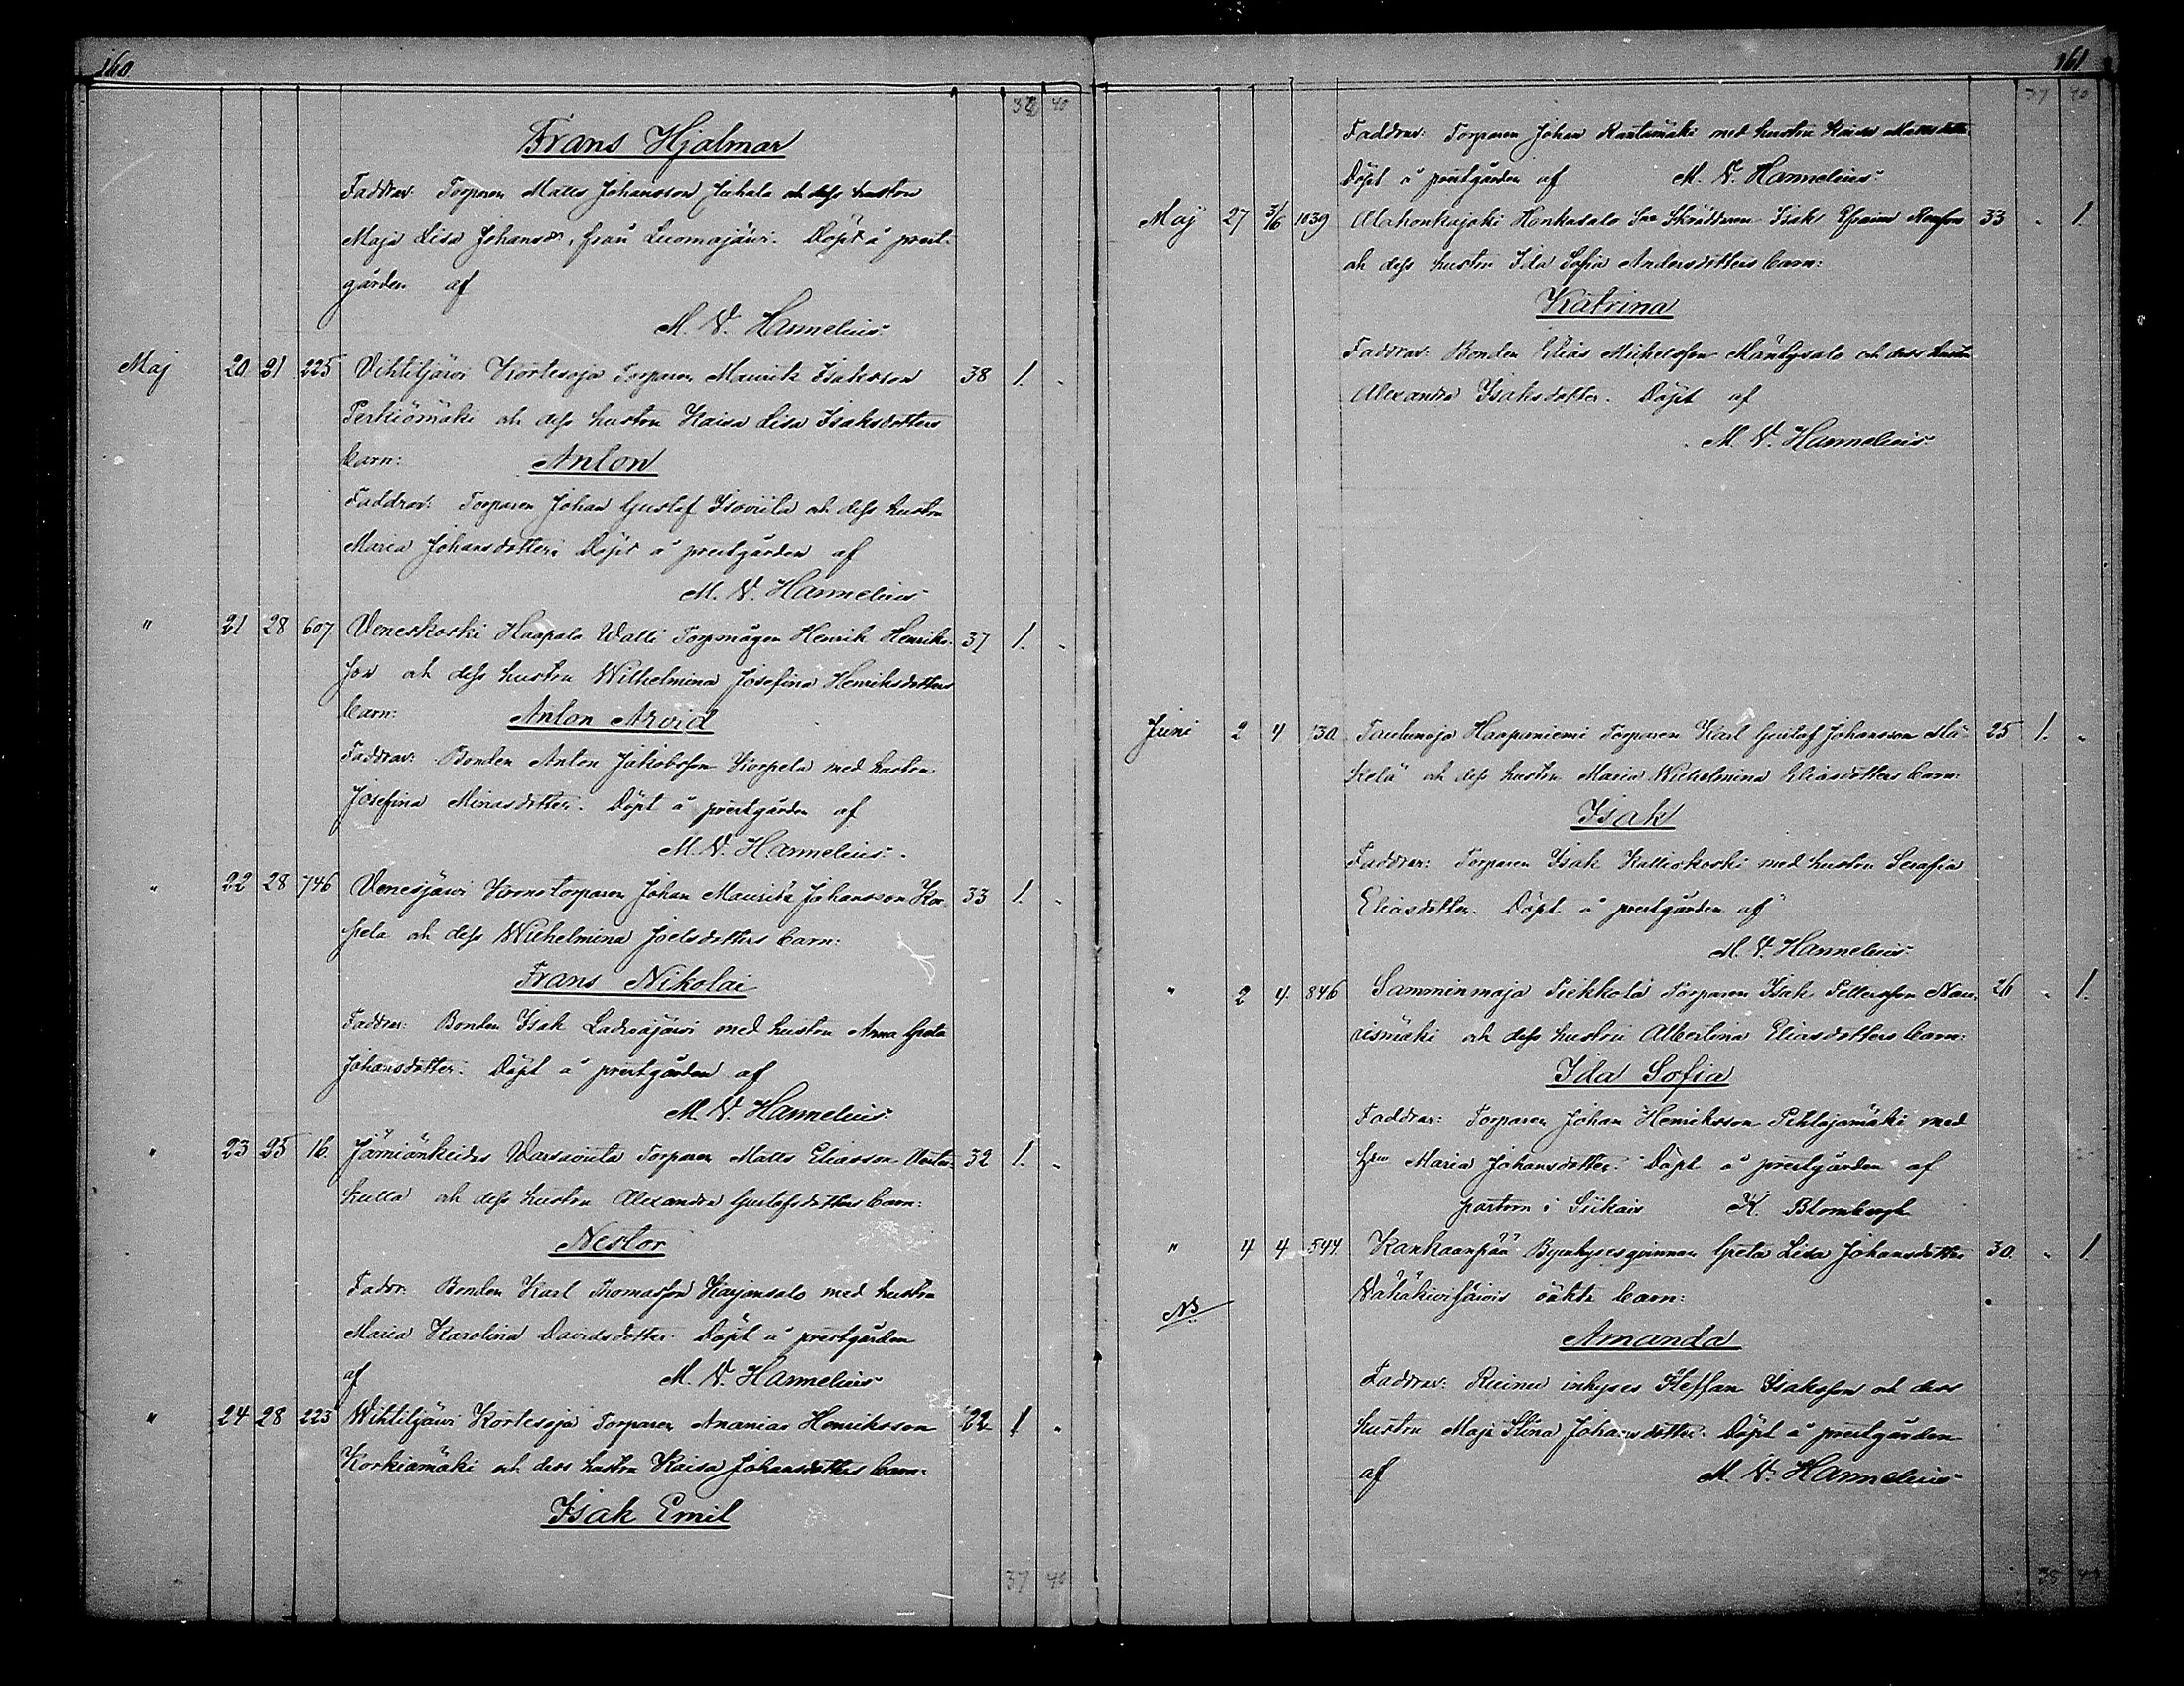 160
32 40
Frans Hjalmar
Faddrar: Torparen Matts Johansson Juhala och dess hustru
Maja Lisa Johansdr. från Luomajärvi. Döpt å prest-
gården af
M. V. Hannelius.
Maj 20 21 225 Vihtiljärvi Kortesoja Torparen Maurits Isaksson 38 1. "
Perkiömäki och dess hustru Kaisa Lisa Isaksdotters
barn: Anton
Faddrar: Torparen Johan Gustaf Isoviita och dess hustru
Maria Johansdotter. Döpt å prestgården af
M. V. Hannelius
" 21 28 607 Veneskoski Haapala Walli Torpmågen Henrik Henriks- 37 1. "
son och dess hustru Wilhelmina Josefina Henriksdotters
barn: Anton Arvid
Faddrar: Bonden Anton Jakobsson Korpela med hustru
Josefina Minasdotter. Döpt å prestgården af
M. V. Hannelius.
" 22 28 746 Venesjärvi Kronotorparen Johan Maurits Johansson Kor- 33 1. "
pela och dess Wilhelmina Joelsdotters barn:
Frans Nikolai
Faddrar: Bonden Isak Ladvajärvi med hustru Anna Greta
Johansdotter. Döpt å prestgården af
M. V. Hannelius.
" 23 25 16. Jämiänkeidas Torparen Matts Eliasson 32 1. "
och dess hustru Alexandra Gustafsdotters barn:
Nestor
Faddr: Bonden Karl Thomasson Karjansalo med hustru
Maria Karolina Davidsdotter. Döpt å prestgården
af M. V. Hannelius
" 24 28 223 Wihtiljärvi Kortesoja Torparen Ananias Henriksson 22 1 "
Korkiamäki och dess hustru Kaisa Johansdotters barn:
Isak Emil
37 40
161.
37 40
Faddrar: Torparen Johan Rantamäki med hustru Kaisa Mattsdotter
Döpt å prestgården af M. V. Hannelius.
Maj 27 3/6 1039 Alahonkajoki Honkasalo Skräddaren Isak Efraim 33 " 1.
och dess hustru Ida Sofia Andersdotters barn:
Katrina
Faddrar: Bonden Elias Michelsson Mäntysalo och dess hustru
Alexandra Isaksdotter. Döpt af
M. V. Hannelius
Juni 2 4 130 Taulunoja Haapaniemi Torparen Karl Gustaf Johansson 25 1. "
och dess hustru Maria Wilhelmina Eliasdotters barn:
Isak
Faddrar: Torparen Isak Kalliokoski med hustru Serafia
Eliasdotter. Döpt å prestgården af
M. V. Hannelius.
" 2 4. 846 Samminmaja Piekkola Torparen Isak Pettersson 26 " 1.
och dess hustru Albertina Eliasdotters barn:
Ida Sofia
Faddrar: Torparen Johan Henriksson Pihlajamäki med
hstru Maria Johansdotter. Döpt å prestgården af
pastorn i Siikais K. Blombergh
" 4 4 544 Kankaanpää Byinhysesqvinnan Greta Lisa Johansdotter 30. " 1
Vähäkivijärvis oäkta barn:
NB
Amanda
Faddrar: inhyses Steffan Isaksson och dess
hustru Maja Stina Johansdotter. Döpt å prestgården
af M. V. Hannelius
38